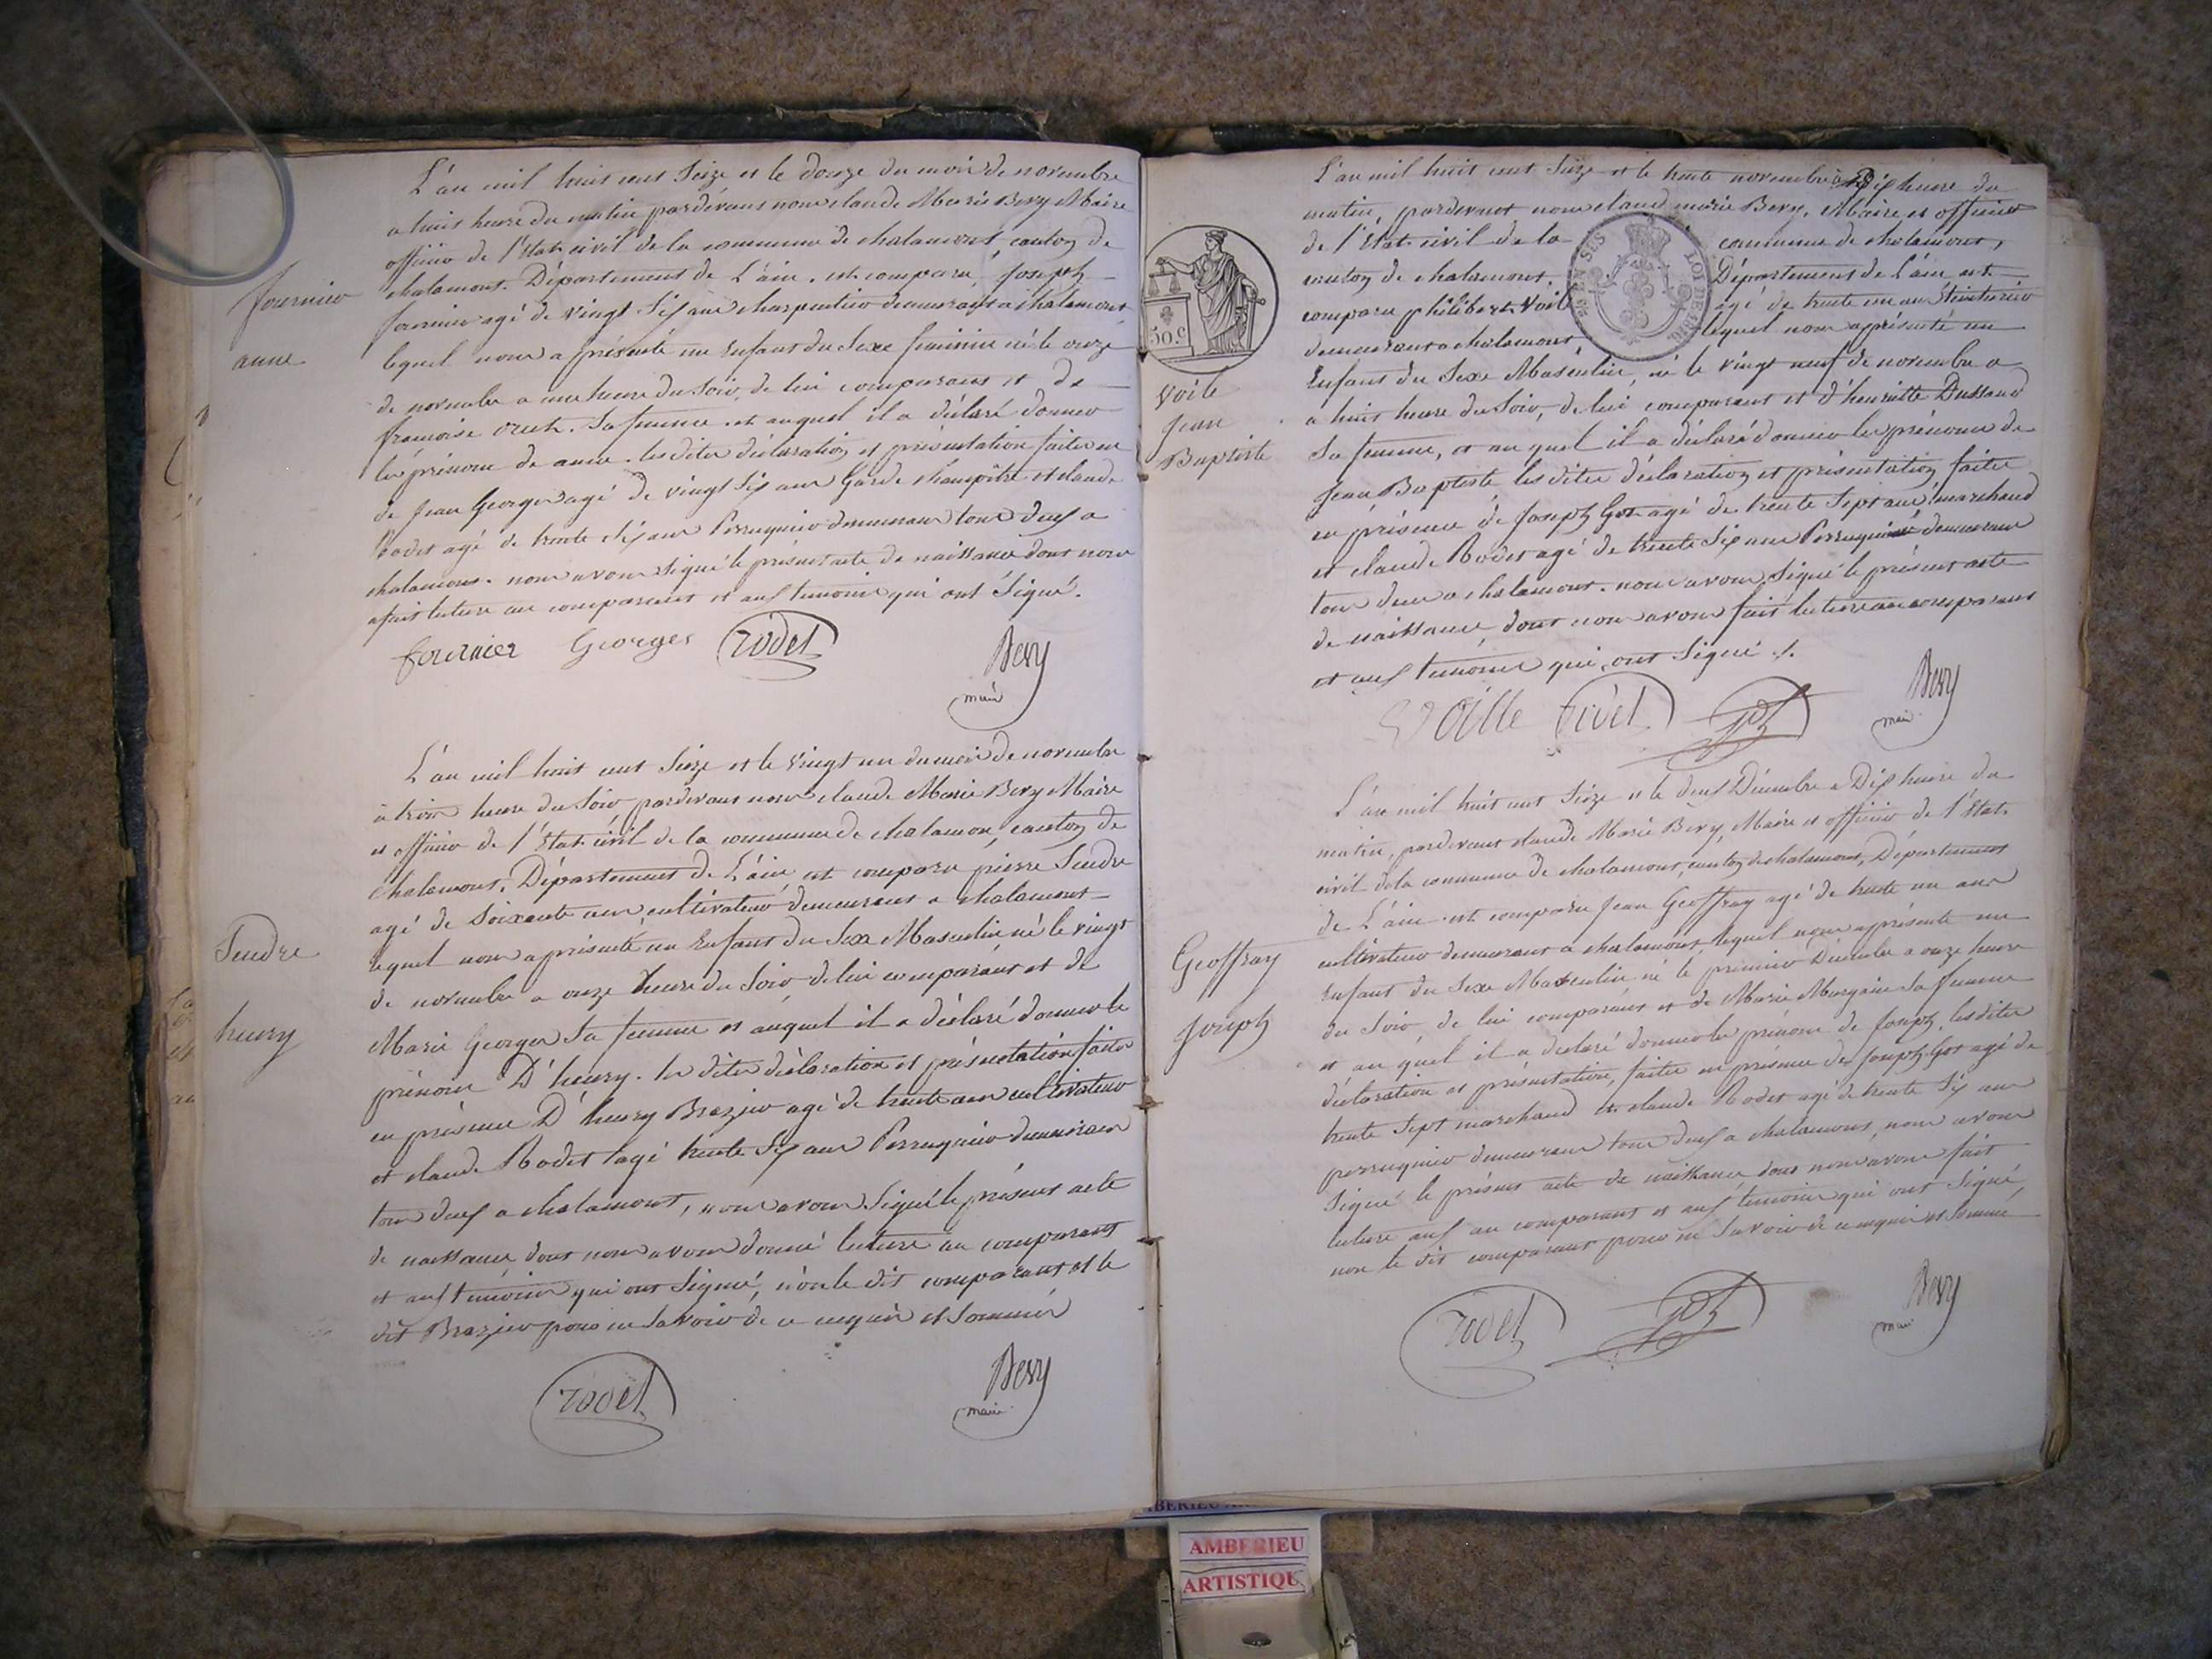 L'an mil huit cent Seize et le Douze du mois de novembre
a huit heures du matin pardevant nous claude Marie Bevy Maire
officier de l'Etat civil de la commune de chalamont, canton de
chalamont. Département de L'ain. est comparu, Joseph
fournier agé de vingt Six ans charpentier demeurant a chalamont
lequel nous a présenté un Enfant du Sexe feminin né le onze
de novembre a une heure du Soir, de lui comparant et de
françoise Sa femme. et auquel il a déclaré donner
les prénoms de anne. les dites déclaration et présentation faites en
de Jean Georges agé de vingt Six ans Garde champêtre et claude
Rodet agé de trente Six ans Perruquier demeurans tous deux a
chalamont. nous avons Signé le présent acte de naissance dont nous
a fait lecture au comparant et aux temoins qui ont Signé.
fournier
anne
fournier Georges rodet Bevy
maire
L'an mil huit cent Seize et le vingt un du mois de novembre
à trois heures du Soir pardevant nous claude Marie Bevy Maire
et officier de l'Etat civil de la commune de chalamon, canton de
chalamont. Département de L'ain est comparu pierre Sendre
agé de Soixante ans cultivateur demeurant a chalamont
lequel nous a présenté un Enfant du Sexe Masculin né le vingt
de novembre a onze heures du Soir de lui comparant et de
Marie Georges Sa femme et auquel il a déclaré donner le
prénom D'heury. les dites déclaration et présentation faites
en présence D'heury Brazier agé de trente ans cultivateur
et claude Rodet agé trente Six ans Perruquier demeurans
tous deux a chalamont, nous avons Signé le présent acte
de naissance, dont nous avons donné lecture au comparant
et aux témoins qui ont Signé, non le dit comparant et le
dit Brazier pour ne Savoir de ce enquis et Sommés
Sendre
heury
rodet Bevy
maire
L'an mil huit cent Seize et le trente novembre a Dix heures du
matin, pardevant nous claude marie Bevy, Maire et officier
de l'Etat civil de la commune de chalamont,
canton de chalamont. Département de L'ain est
comparu philibert Voile agé de trente un ans
demeurant a chalamont, lequel nous a présenté un
Enfant du Sexe Masculin, né le vingt neuf de novembre a
a huit heures du Soir, de lui comparant et d'henriette Dussaud
Sa femme, et au quel il a déclaré donner les prénoms de
Jean Baptiste les dites déclaration et présentation faites
en présence de Joseph Got agé de trente Sept ans marchand
et claude Rodet agé de trente Six ans Perruquier demeurans
tous deux a chalamont. nous avons Signé le présent acte
de naissance, dont nous avons fait lecture au comparant
et aux temoins qui ont Signé ./.
50.c
LOI DE 1816
Voile
Jean
Baptiste
Voille rodet got Bevy
maire
L'an mil huit cent Seize et le deux Décembre a Dix heures du
matin, pardevant claude Marie Bevy, Maire et officier de l'Etat
civil de la commune de chalamont, canton de chalamont, Département
de L'ain. est comparu Jean Geoffray agé de trente un ans
cultivateur demeurant a chalamont, lequel nous a présenté un
Enfant du Sexe Masculin né le premier Décembre a onze heures
du Soir, de lui comparant et de Marie Morgain Sa femme
et au quel il a déclaré donner les prénoms de Joseph. les dites
déclaration et présentation, faites en présence de Joseph Got agé de
trente Sept marchand et claude Rodet agé de trente Six ans
perruquier demeurans tous deux a chalamont, nous avons
Signé le présent acte de naissance dont nous avons fait
lecture aux au comparant et aux temoins qui ont Signé,
non le dit comparant pour ne Savoir de ce enquis et Sommé
Geoffray
Joseph
rodet got Bevy
maire
AMBERIEU
ARTISTIQU